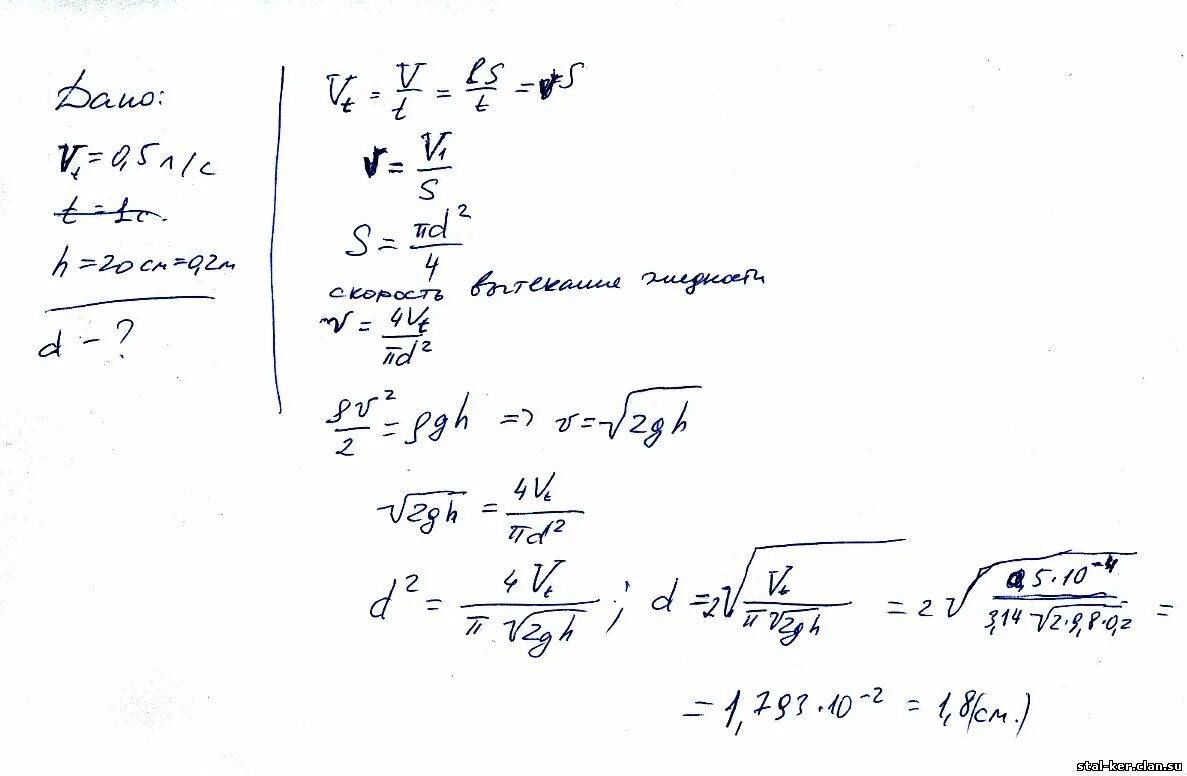 Дано:
V_t = 0,5 л/с
t = 1с.
h = 20 см = 0,2 м
d - ?
V_t = V/t = ℓS/t = vS
v = V_1/S
S = πd²/4
скорость вытекание жидкости
v = 4V_t/πd²
ρv²/2 = ρgh => v = √2gh
√2gh = 4V_t/πd²
d² = 4V_t/π√2gh ; d = 2√V_t/π√2gh = 2√5·10⁻⁴/3,14√2·9,8·0,2 =
= 1,793·10⁻² = 1,8 (см.)
stal-ker.clan.su